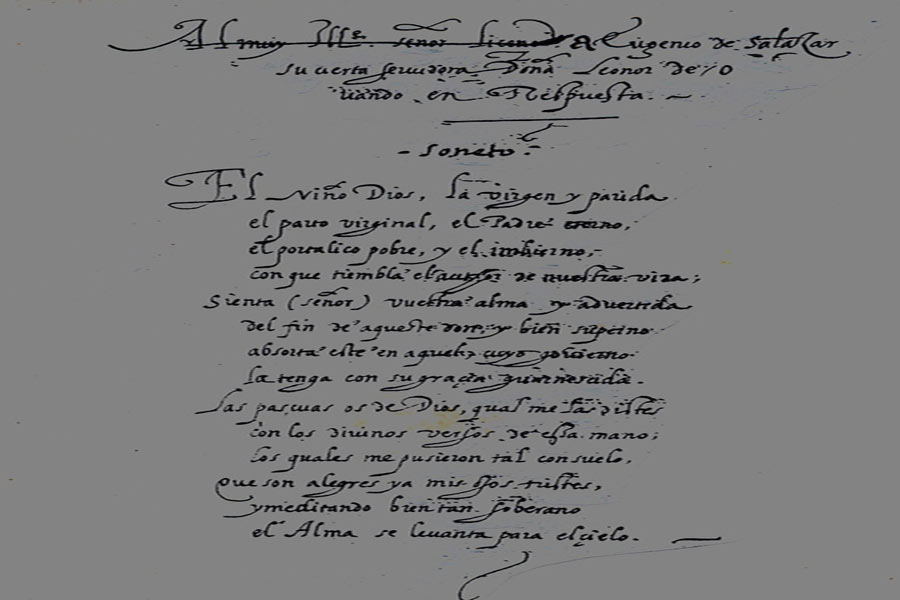 Al muy Ille. señor licendo. Eugenio de Salazar
su cierta seruidora Doña Leonor de yo
uando en Respuesta.
- Soneto -
El Niño Dios, la virgen y parida
el parto virginal, el Padre eterno,
el portalico pobre, y el inbierno,
con que tiembla el auctor de nuestra vida;
Sienta (señor) vuestra alma y aduertida
del fin de aqueste don, y bien superno
absorta este en aquel, cuyo gouierno
la tenga con su gracia guarnescida.
Las pascuas os de Dios, qual me las distes
con los diuinos versos de essa mano;
los quales me pusieron tal consuelo,
Que son alegres ya mis ojos tristes,
y meditando bien tan soberano
el Alma se leuanta para el cielo.